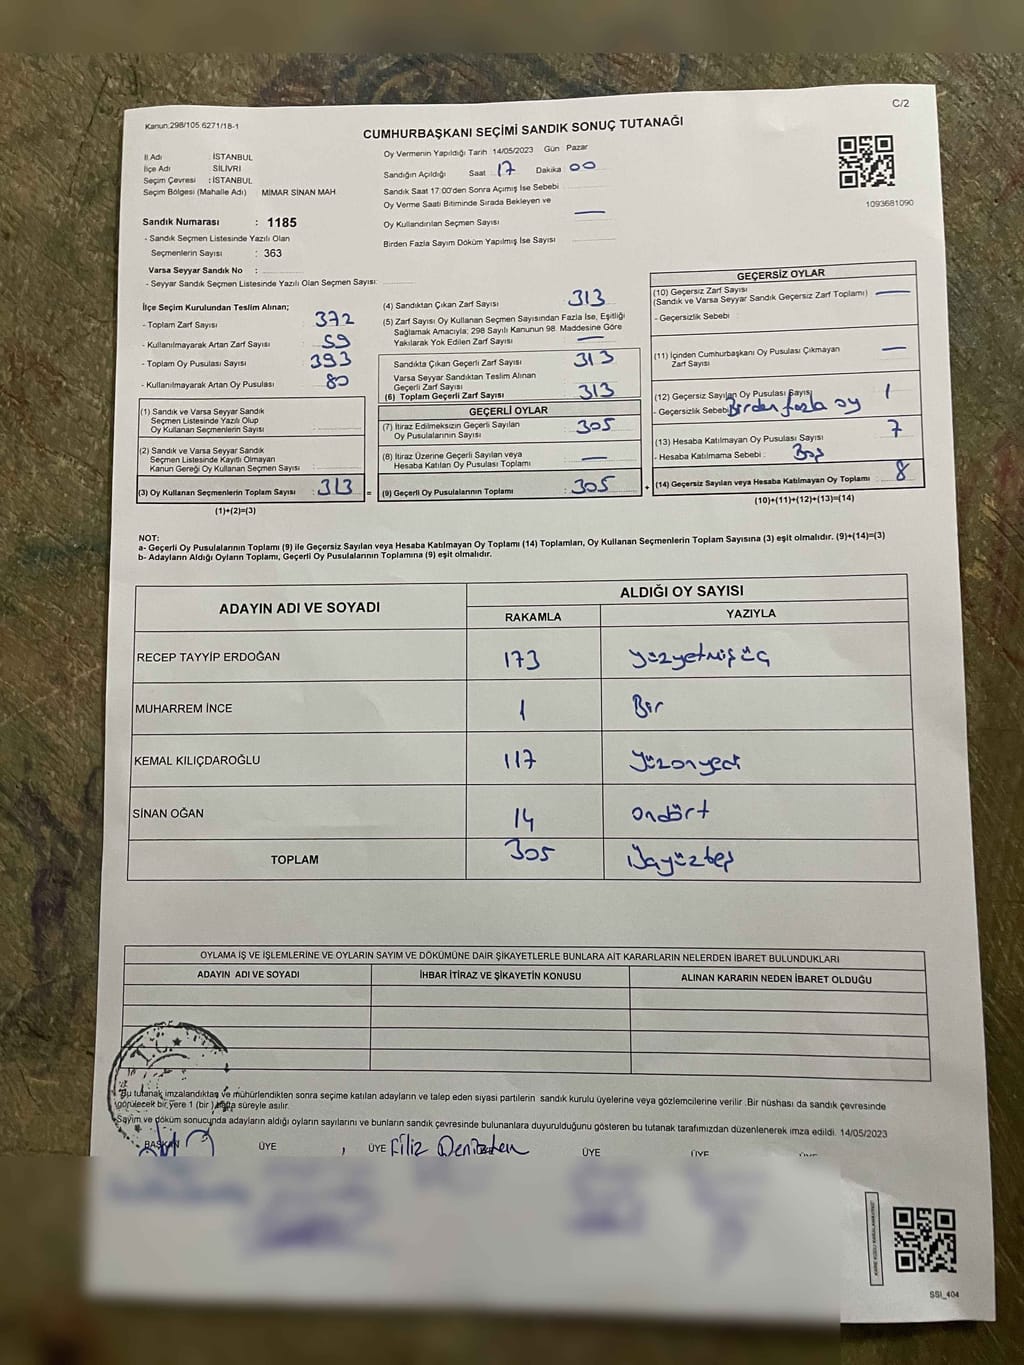 C/2
Kanun:298/105 6271/18-1
CUMHURBAŞKANI SEÇİMİ SANDIK SONUÇ TUTANAĞI
İl Adı : İSTANBUL
İlçe Adı : SİLİVRİ
Seçim Çevresi : İSTANBUL
Seçim Bölgesi (Mahalle Adı) MİMAR SİNAN MAH
Sandık Numarası : 1185
- Sandık Seçmen Listesinde Yazılı Olan
Seçmenlerin Sayısı : 363
Varsa Seyyar Sandık No :
- Seyyar Sandık Seçmen Listesinde Yazılı Olan Seçmen Sayısı:
Oy Vermenin Yapıldığı Tarih 14/05/2023 Gün : Pazar
Sandığın Açıldığı Saat : 17 Dakika : 00
Sandık Saat 17:00'den Sonra Açımış İse Sebebi
Oy Verme Saati Bitiminde Sırada Bekleyen ve
Oy Kullandırılan Seçmen Sayısı —
Birden Fazla Sayım Döküm Yapılmış İse Sayısı
1093681090
İlçe Seçim Kurulundan Teslim Alınan;
- Toplam Zarf Sayısı : 372
- Kullanılmayarak Artan Zarf Sayısı : 59
- Toplam Oy Pusulası Sayısı : 393
- Kullanılmayarak Artan Oy Pusulası : 80
(1) Sandık ve Varsa Seyyar Sandık
Seçmen Listesinde Yazılı Olup
Oy Kullanan Seçmenlerin Sayısı :
(2) Sandık ve Varsa Seyyar Sandık
Seçmen Listesinde Kayıtlı Olmayan
Kanun Gereği Oy Kullanan Seçmen Sayısı :
(3) Oy Kullanan Seçmenlerin Toplam Sayısı : 313 =
(1)+(2)=(3)
(4) Sandıktan Çıkan Zarf Sayısı : 313
(5) Zarf Sayısı Oy Kullanan Seçmen Sayısından Fazla İse, Eşitliği
Sağlamak Amacıyla; 298 Sayılı Kanunun 98. Maddesine Göre
Yakılarak Yok Edilen Zarf Sayısı : —
Sandıkta Çıkan Geçerli Zarf Sayısı : 313
Varsa Seyyar Sandıktan Teslim Alınan
Geçerli Zarf Sayısı
(6) Toplam Geçerli Zarf Sayısı : 313
GEÇERLİ OYLAR
(7) İtiraz Edilmeksizin Geçerli Sayılan
Oy Pusulalarının Sayısı : 305
(8) İtiraz Üzerine Geçerli Sayılan veya
Hesaba Katılan Oy Pusulası Toplamı : —
(9) Geçerli Oy Pusulalarının Toplamı : 305 +
GEÇERSİZ OYLAR
(10) Geçersiz Zarf Sayısı
(Sandık ve Varsa Seyyar Sandık Geçersiz Zarf Toplamı) : —
- Geçersizlik Sebebi :
(11) İçinden Cumhurbaşkanı Oy Pusulası Çıkmayan
Zarf Sayısı —
(12) Geçersiz Sayılan Oy Pusulası Sayısı 1
- Geçersizlik Sebebi : Birden fazla oy
(13) Hesaba Katılmayan Oy Pusulası Sayısı 7
- Hesaba Katılmama Sebebi : Boş
(14) Geçersiz Sayılan veya Hesaba Katılmayan Oy Toplamı : 8
(10)+(11)+(12)+(13)=(14)
NOT:
a- Geçerli Oy Pusulalarının Toplamı (9) ile Geçersiz Sayılan veya Hesaba Katılmayan Oy Toplamı (14) Toplamları, Oy Kullanan Seçmenlerin Toplam Sayısına (3) eşit olmalıdır. (9)+(14)=(3)
b- Adayların Aldığı Oyların Toplamı, Geçerli Oy Pusulalarının Toplamına (9) eşit olmalıdır.
ADAYIN ADI VE SOYADI
ALDIĞI OY SAYISI
RAKAMLA YAZIYLA
RECEP TAYYİP ERDOĞAN 173 Yüzyetmişüç
MUHARREM İNCE 1 Bir
KEMAL KILIÇDAROĞLU 117 Yüzonyedi
SİNAN OĞAN 14 Ondört
TOPLAM 305 Üçyüzbeş
OYLAMA İŞ VE İŞLEMLERİNE VE OYLARIN SAYIM VE DÖKÜMÜNE DAİR ŞİKAYETLERLE BUNLARA AİT KARARLARIN NELERDEN İBARET BULUNDUKLARI
ADAYIN ADI VE SOYADI İHBAR İTİRAZ VE ŞİKAYETİN KONUSU ALINAN KARARIN NEDEN İBARET OLDUĞU
T.C.
Bu tutanak imzalandıktan ve mühürlendikten sonra seçime katılan adayların ve talep eden siyasi partilerin sandık kurulu üyelerine veya gözlemcilerine verilir .Bir nüshası da sandık çevresinde
görülecek bir yere 1 (bir ) hafta süreyle asılır.
Sayım ve döküm sonucunda adayların aldığı oyların sayılarını ve bunların sandık çevresinde bulunanlara duyurulduğunu gösteren bu tutanak tarafımızdan düzenlenerek imza edildi. 14/05/2023
BAŞKAN ÜYE ÜYE Filiz ÜYE ÜYE
SSI_404